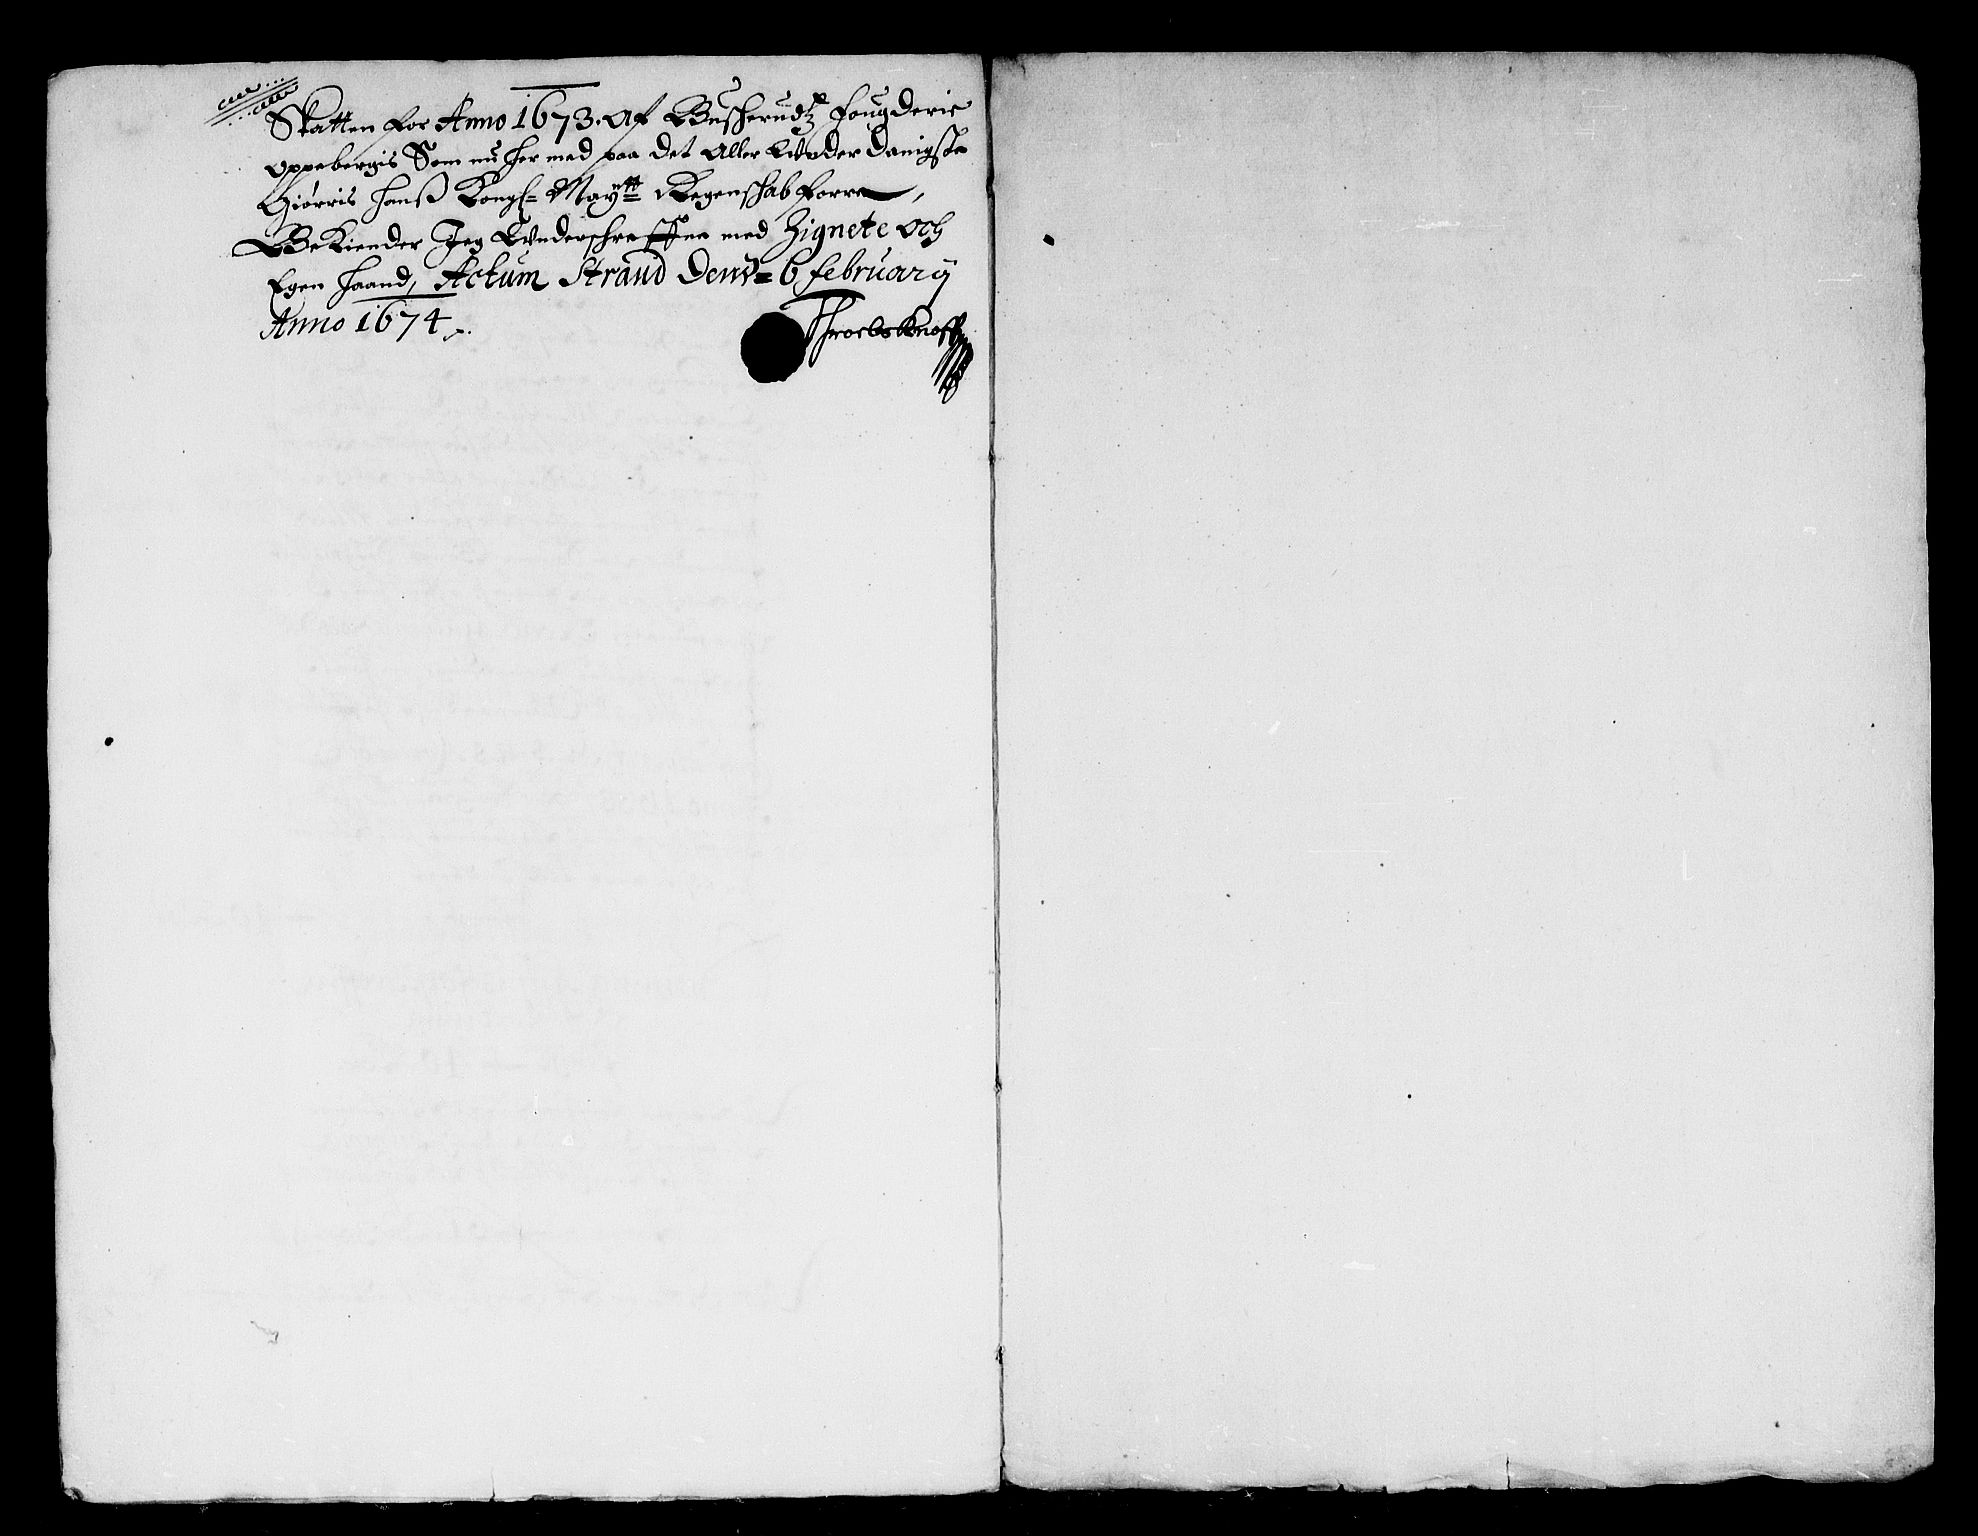 Skatten for Anno 1673. Af Buscherudtz fougderie
oppebergis Som nu her med paa det Aller Vnder danigste
Giörris hanß Kongl: Maytt: Regenschab forre,
Bekiender Jeg Vnderschreffne med Zignete och
Egen haand, Actum Strand Denn 6 february
Anno 1674
Throels Knoff